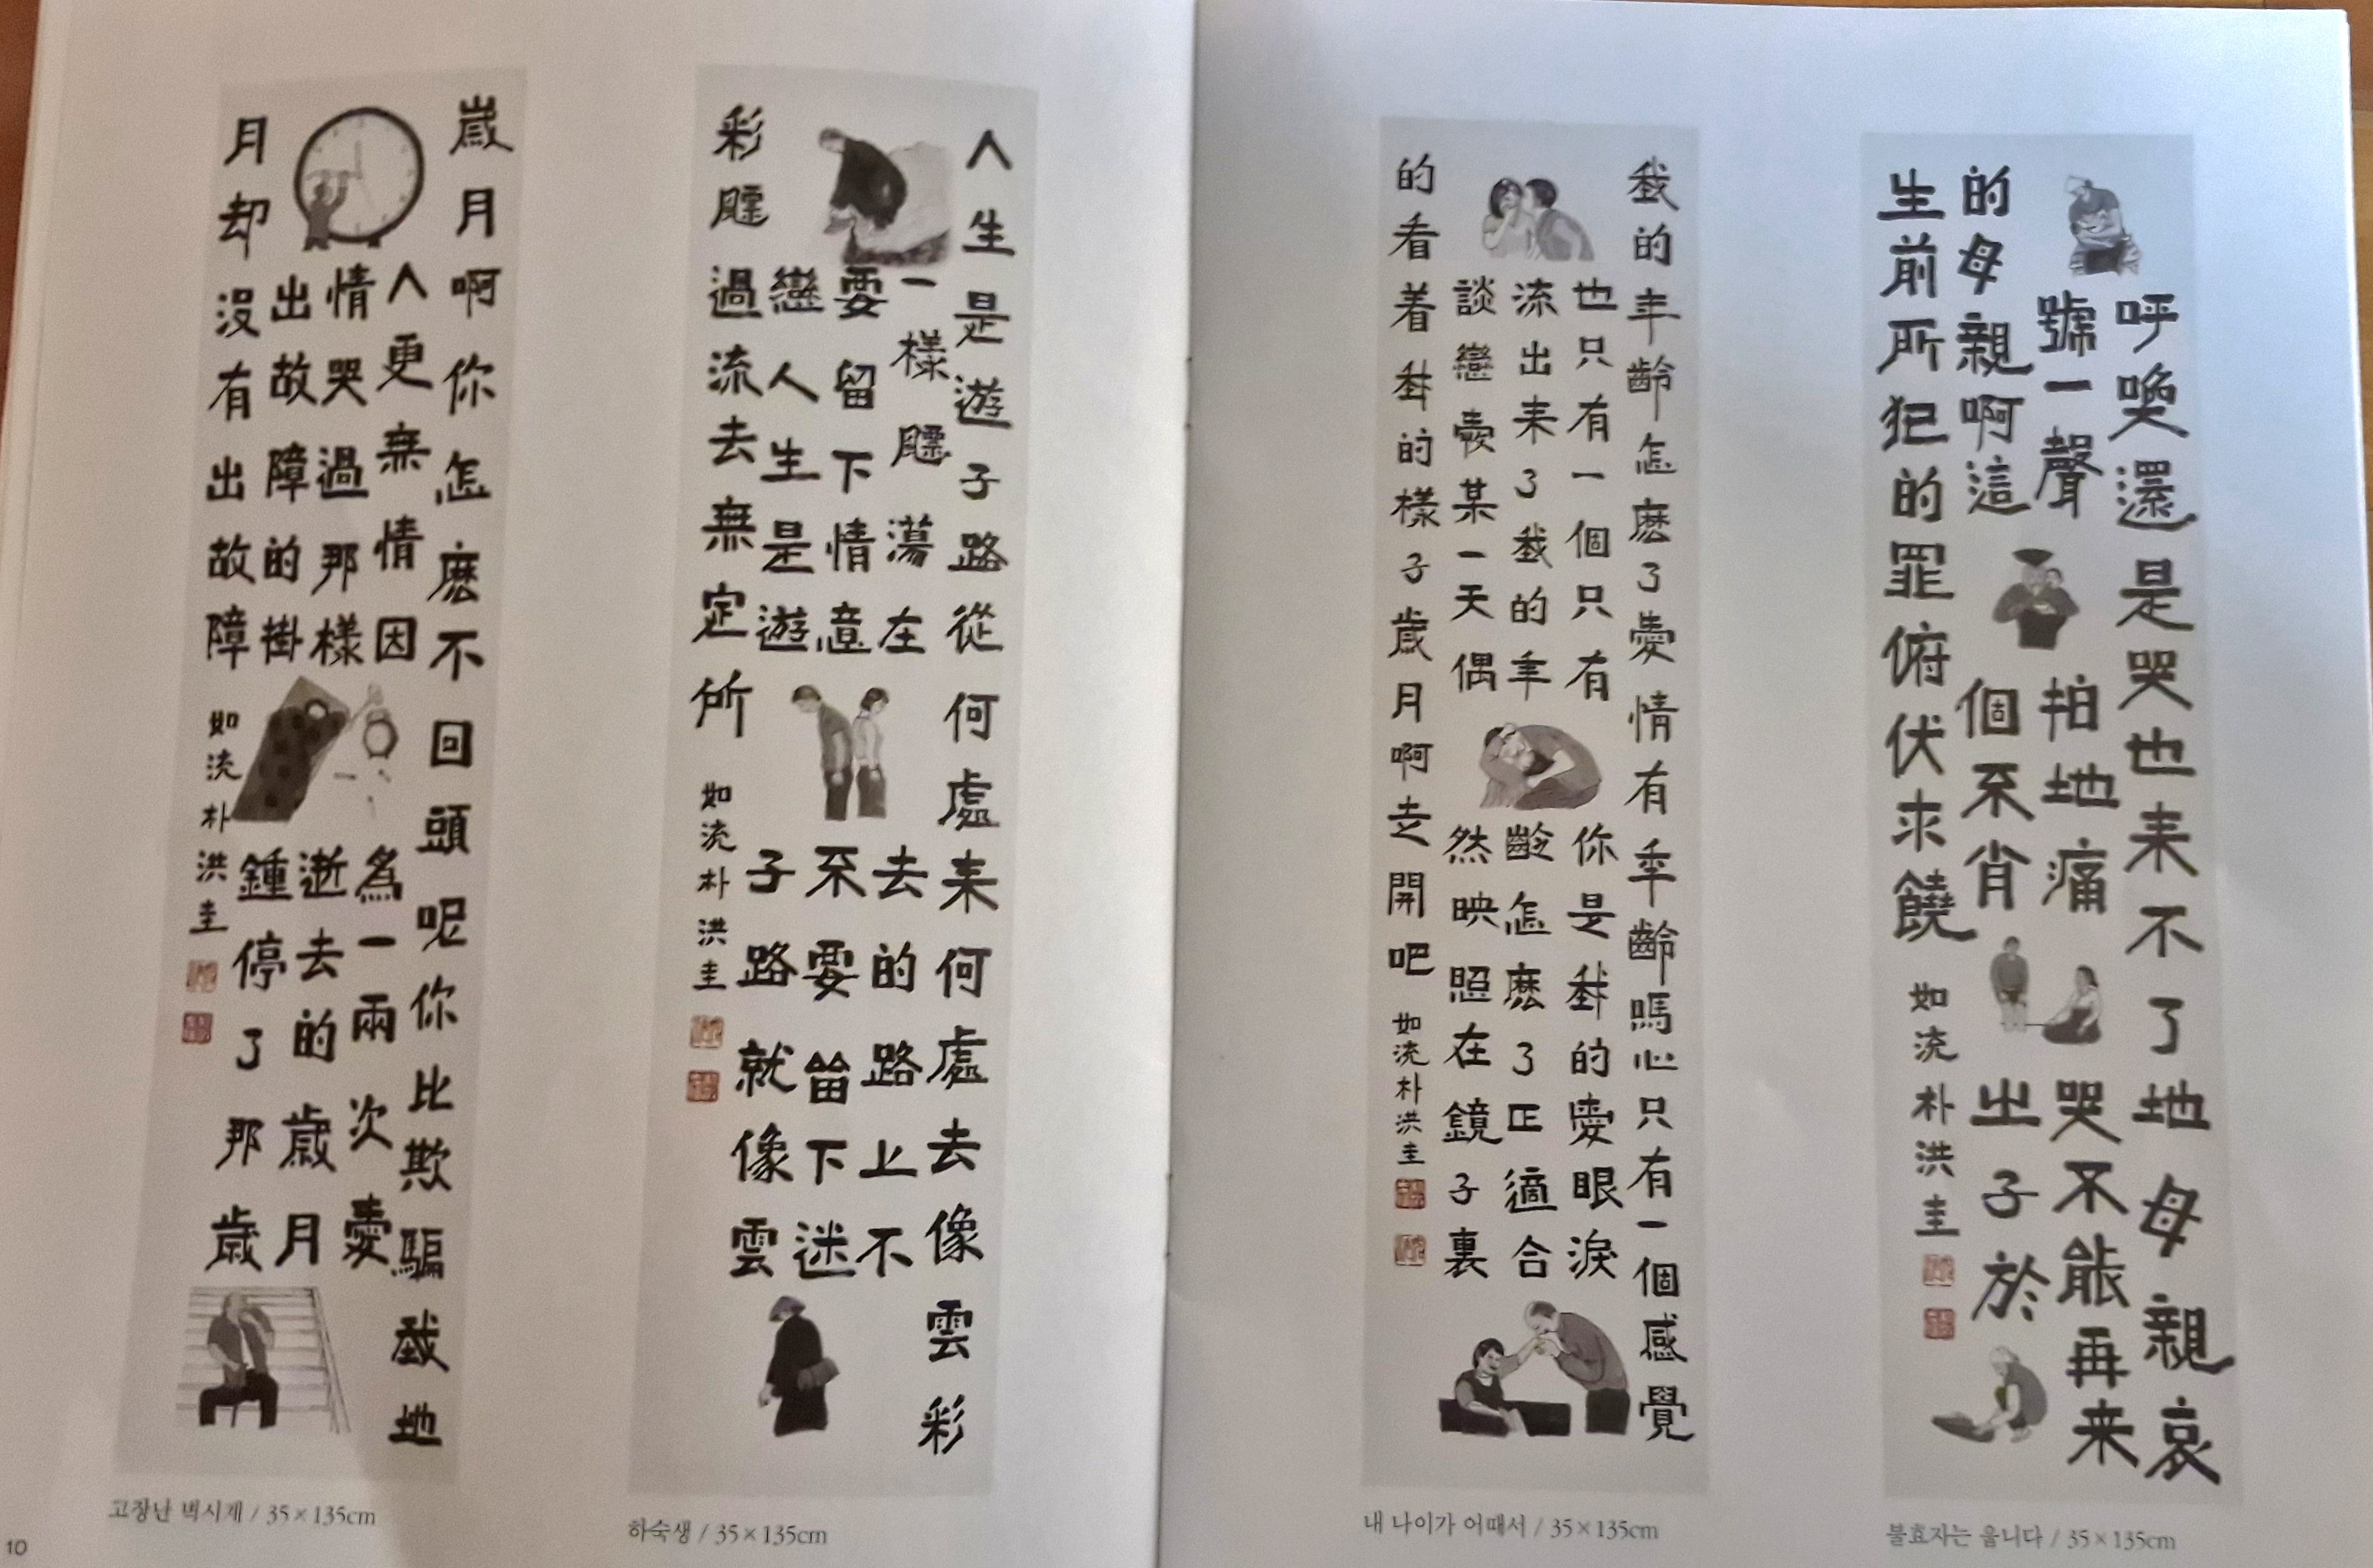 歲月啊你怎麽不回頭呢你比欺騙我地
人更無情因為一兩次愛
情哭過那樣逝去的歲月
出故障的掛鍾停了那歲
月却沒有出故障
如流朴洪圭
고장난 벽시계 / 35×135cm
10
人生是遊子路從何處来何處去像雲彩
一樣飄蕩在去的路上不
要留下情意不要留下迷
戀人生是遊子路就像雲
彩飄過流去無定所
如流朴洪圭
하숙생 / 35×135cm
我的年齡怎麽了愛情有年齡嗎心只有一個感覺
也只有一個只有你是我的愛眼淚
流出来了我的年齡怎麽了正適合
談戀愛某一天偶然映照在鏡子裏
的看着我的樣子歲月啊走開吧
如流朴洪圭
내 나이가 어때서 / 35×135cm
呼喚還是哭也来不了地母親哀
號一聲拍地痛哭不能再来
的母親啊這個不肖出子於
生前所犯的罪俯伏求饒
如流朴洪圭
불효자는 웁니다 / 35×135cm